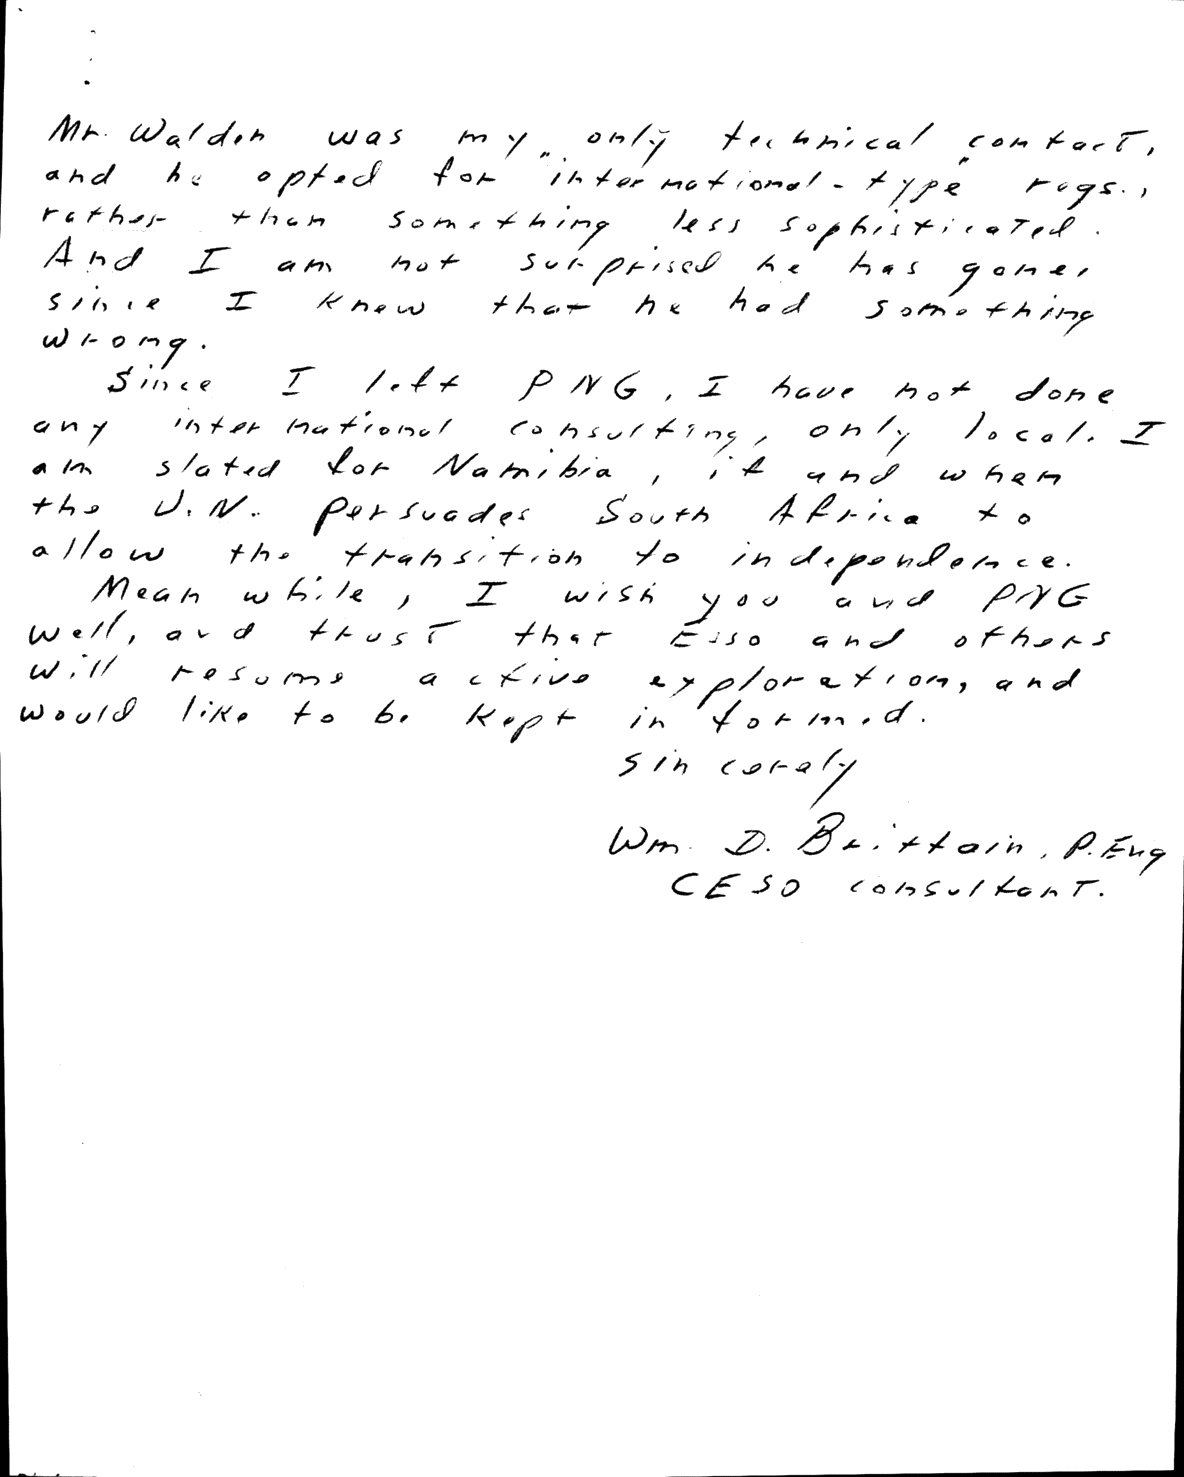 Mr. Walden was my only technical contact,
and he opted for "international-type" regs.,
rather than something less sophisticated.
And I am not surprised he has gone,
since I knew that he had something
wrong.
Since I left PNG, I have not done
any international consulting, only local. I
am slated for Namibia, if and when
the U.N. persuades South Africa to
allow the transition to independence.
Mean while, I wish you and PNG
well, and trust that Esso and others
will resume active exploration, and
would like to be kept informed.
Sincerely
Wm. D. Brittain, P. Eng
CESO consultant.